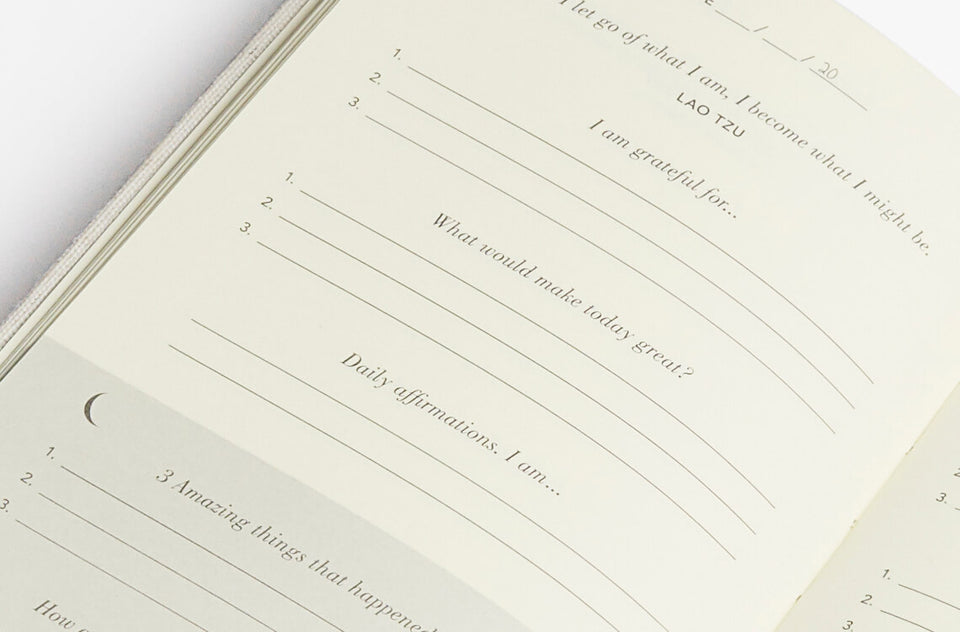 ___/___/20
I let go of what I am, I become what I might be.
LAO TZU
I am grateful for...
1.
2.
3.
What would make today great?
1.
2.
3.
Daily affirmations. I am...
3 Amazing things that happened
1.
2.
3.
How
3.
1.
2.
3.